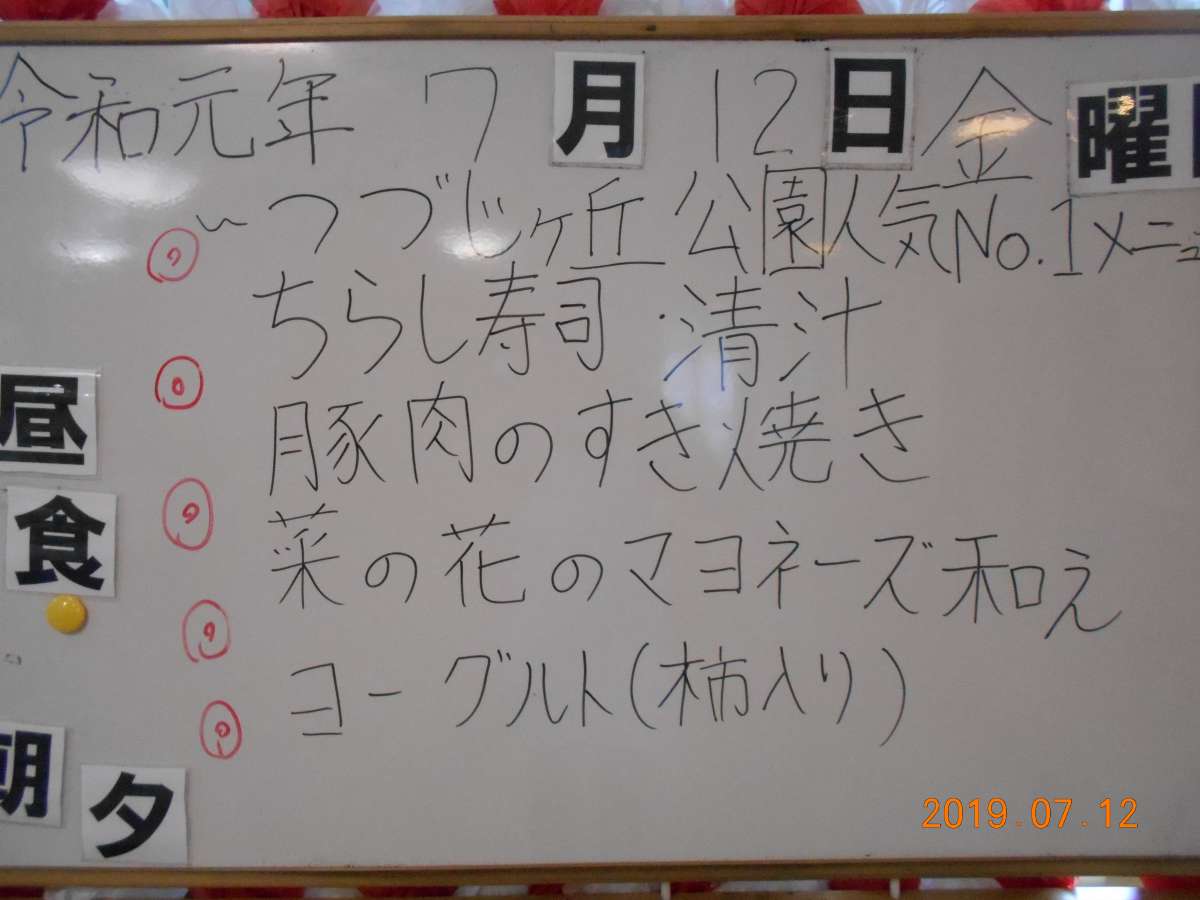 令和元年 7月12日金曜日
〜つづじヶ丘公園人気No.1メニュ
ちらし寿司・清汁
豚肉のすき焼き
菜の花のマヨネーズ和え
ヨーグルト(柿入り)
昼
食
朝
夕
2019.07.12